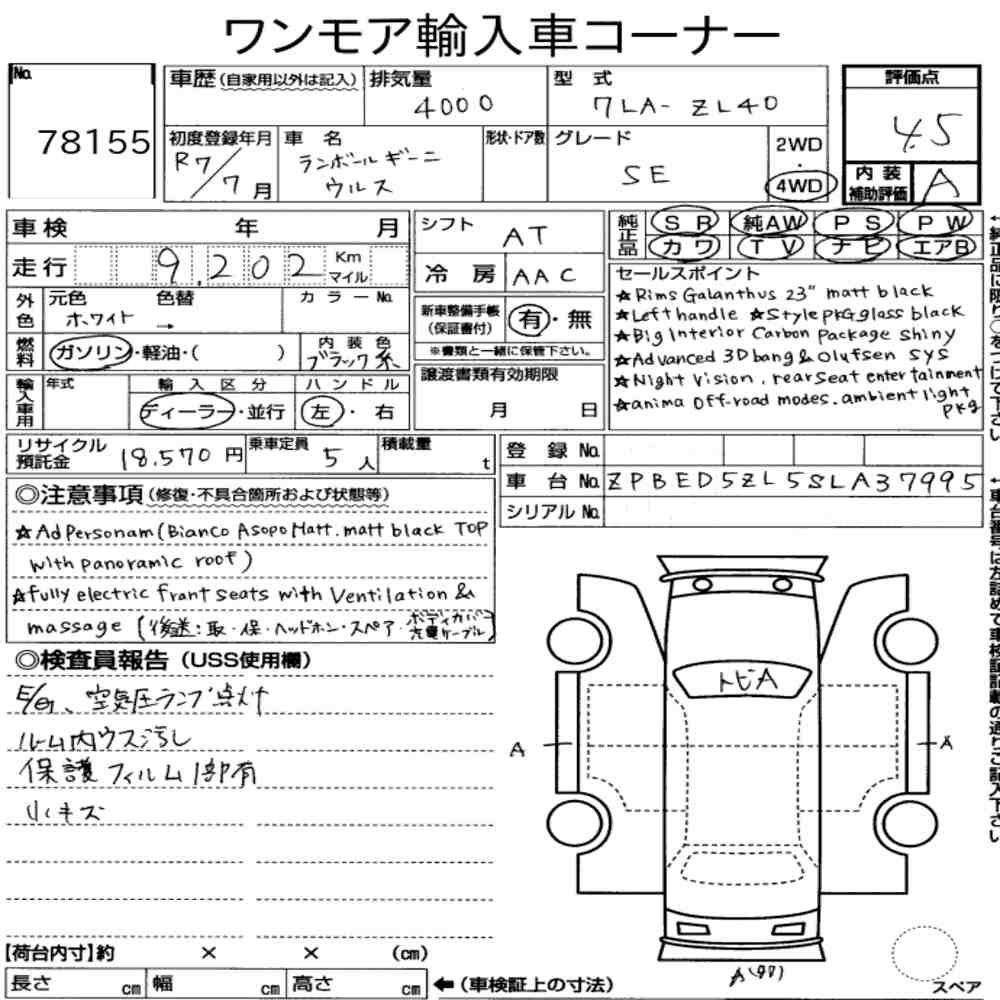 ワンモア輸入車コーナー
No. 78155
車歴(自家用以外は記入)
排気量 4000
型式 7LA-ZL40
評価点 4.5
初度登録年月 R7/7月
車名 ランボールギーニ ウルス
形状・ドア数
グレード SE
2WD・4WD
内装補助評価 A
車検 年 月
シフト AT
純正品 SR 純AW PS PW
カワ TV ナビ エアB
走行 9,202 Km マイル
冷房 AAC
外色 元色 ホワイト 色替 → カラーNo.
新車整備手帳(保証書付) 有・無
※書類と一緒に保管下さい。
燃料 ガソリン・軽油・( ) 内装色 ブラック系
輸入車用 年式 輸入区分 ディーラー・並行 ハンドル 左・右
譲渡書類有効期限 月 日
セールスポイント
☆Rims Galanthus 23" matt black
☆Left handle ☆Style PKG glass black
☆Big Interior Carbon Package shiny
☆Advanced 3D bang & Olufsen sys
☆Night vision. rear seat entertainment
☆anima Off-road modes. ambient light pkg
リサイクル預託金 18,570円
乗車定員 5人
積載量 t
登録No.
車台No. ZPBED5ZL5SLA37995
シリアルNo.
←純正品に限り○をつけて下さい
←車台番号は左詰めで車検証記載の通りご記入下さい
◎注意事項(修復・不具合箇所および状態等)
☆Ad Personam (Bianco Asopo Matt. matt black TOP
with panoramic roof)
☆fully electric frant seats with Ventilation &
massage (後送:取・保・ヘッドホン・スペア・ボディカバー 充電ケーブル)
◎検査員報告(USS使用欄)
E/G、空気圧ランプ点灯
ルーム内ウス汚し
保護フィルム1部有
小キズ
トビA
A
A
A(90)
【荷台内寸】約 × × (cm)
長さ cm 幅 cm 高さ cm ←(車検証上の寸法)
スペア